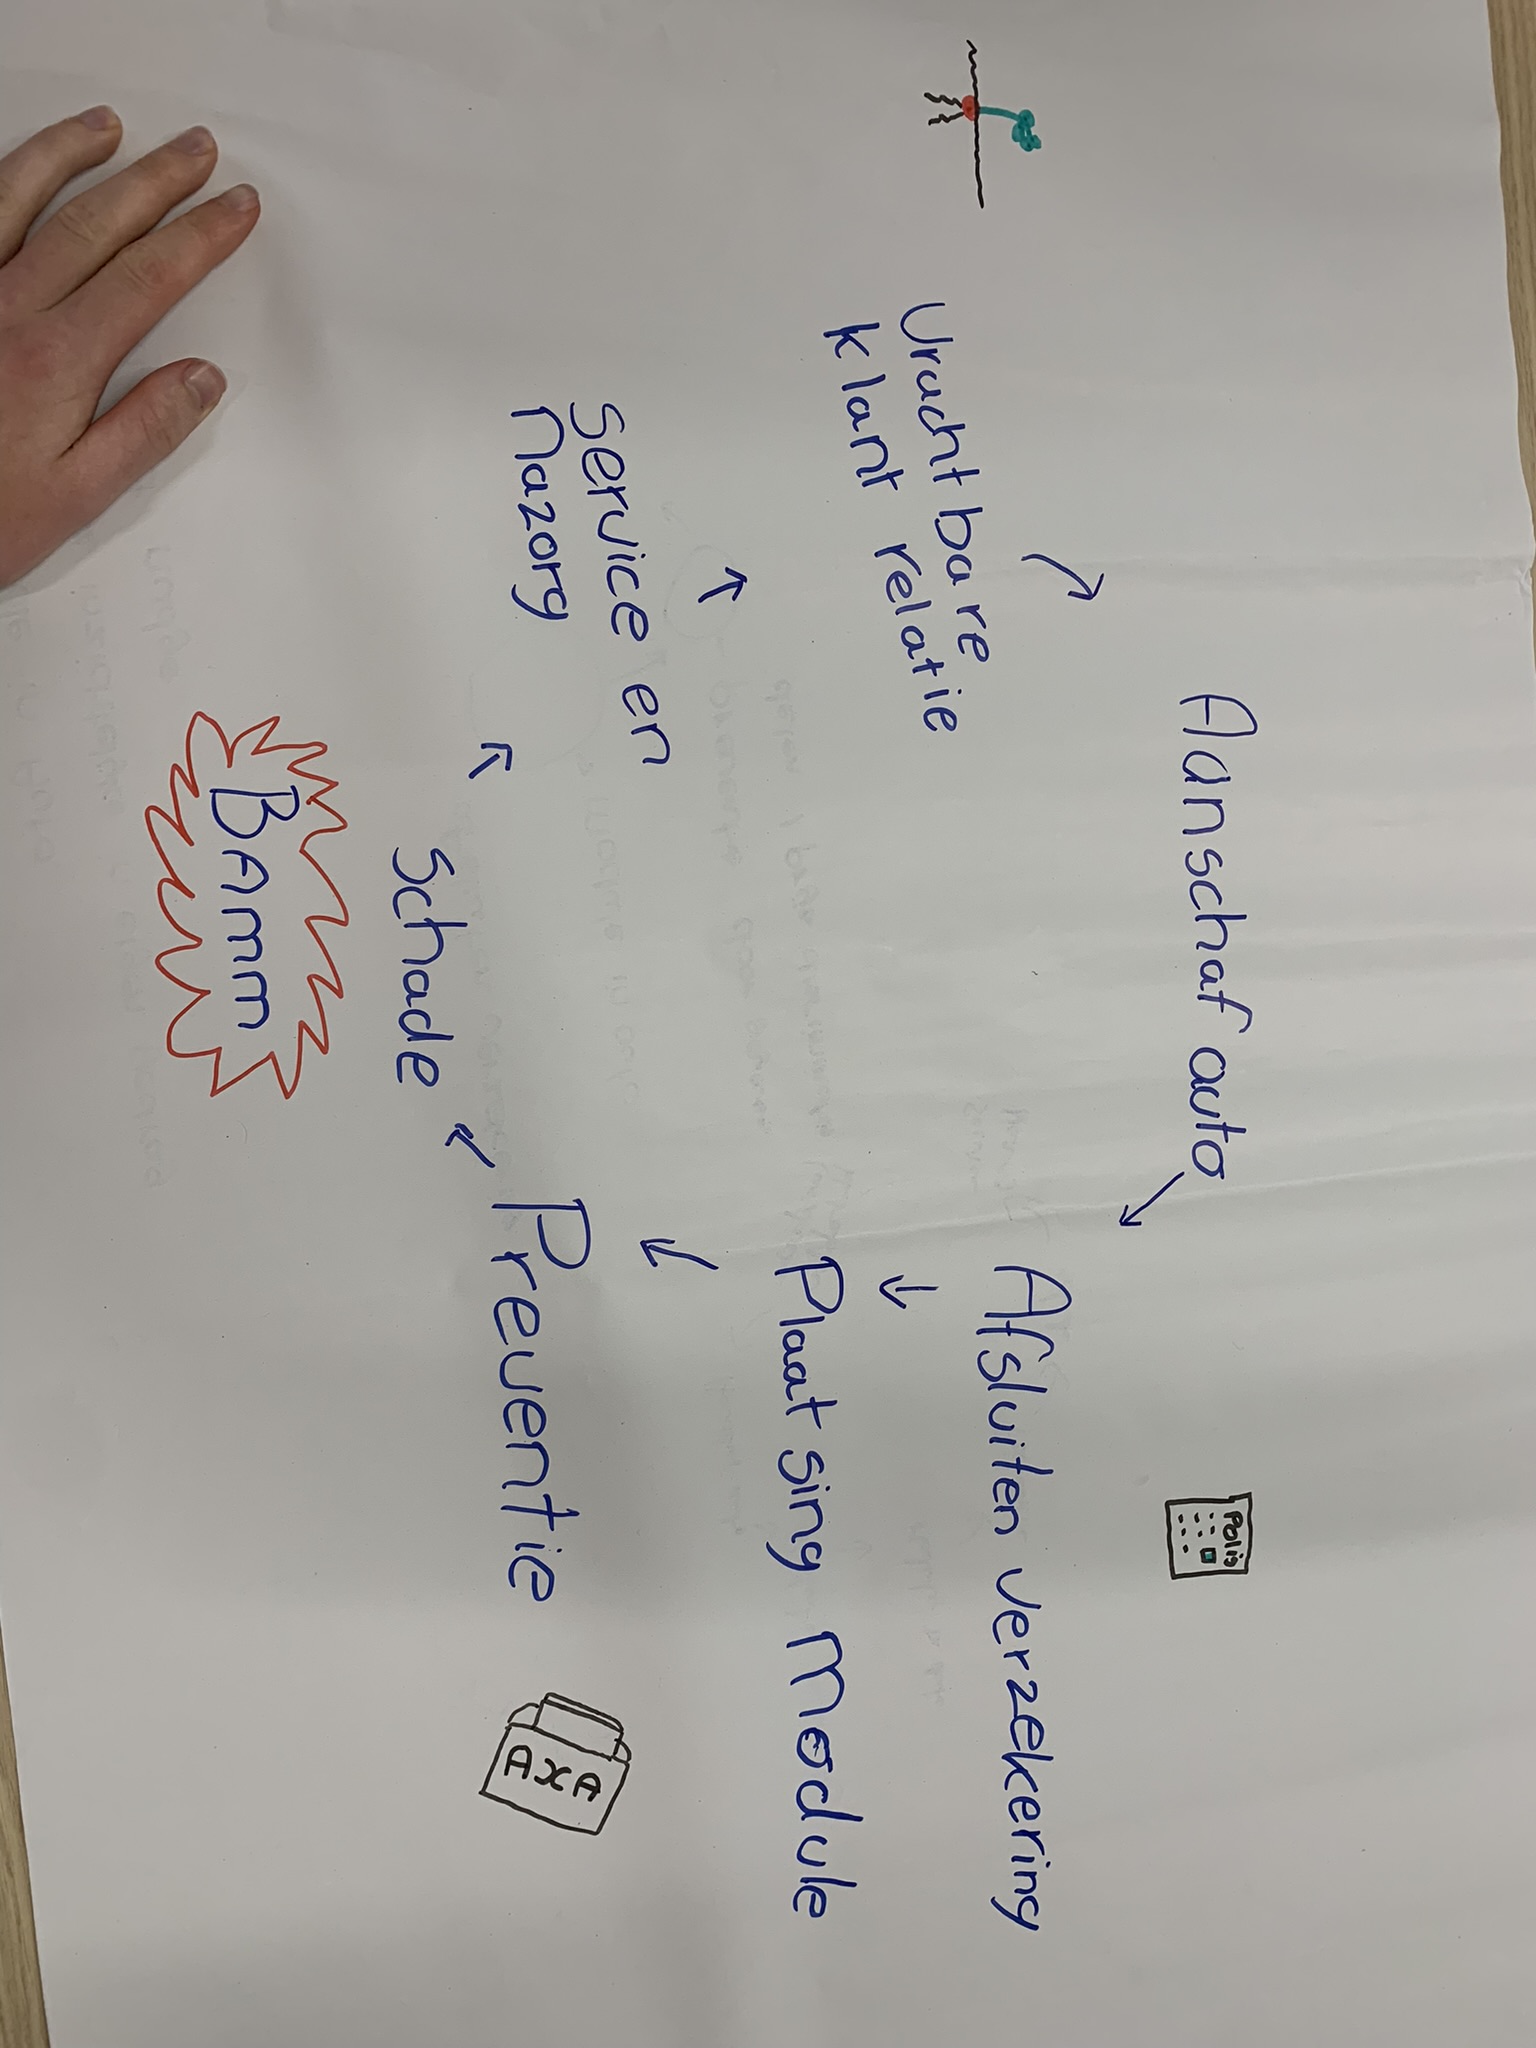 Aanschaf auto
Polis
Afsluiten verzekering
Plaatsing Module
Preventie
AXA
Schade
BAmm
Service en
Nazorg
Vruchtbare
klant relatie